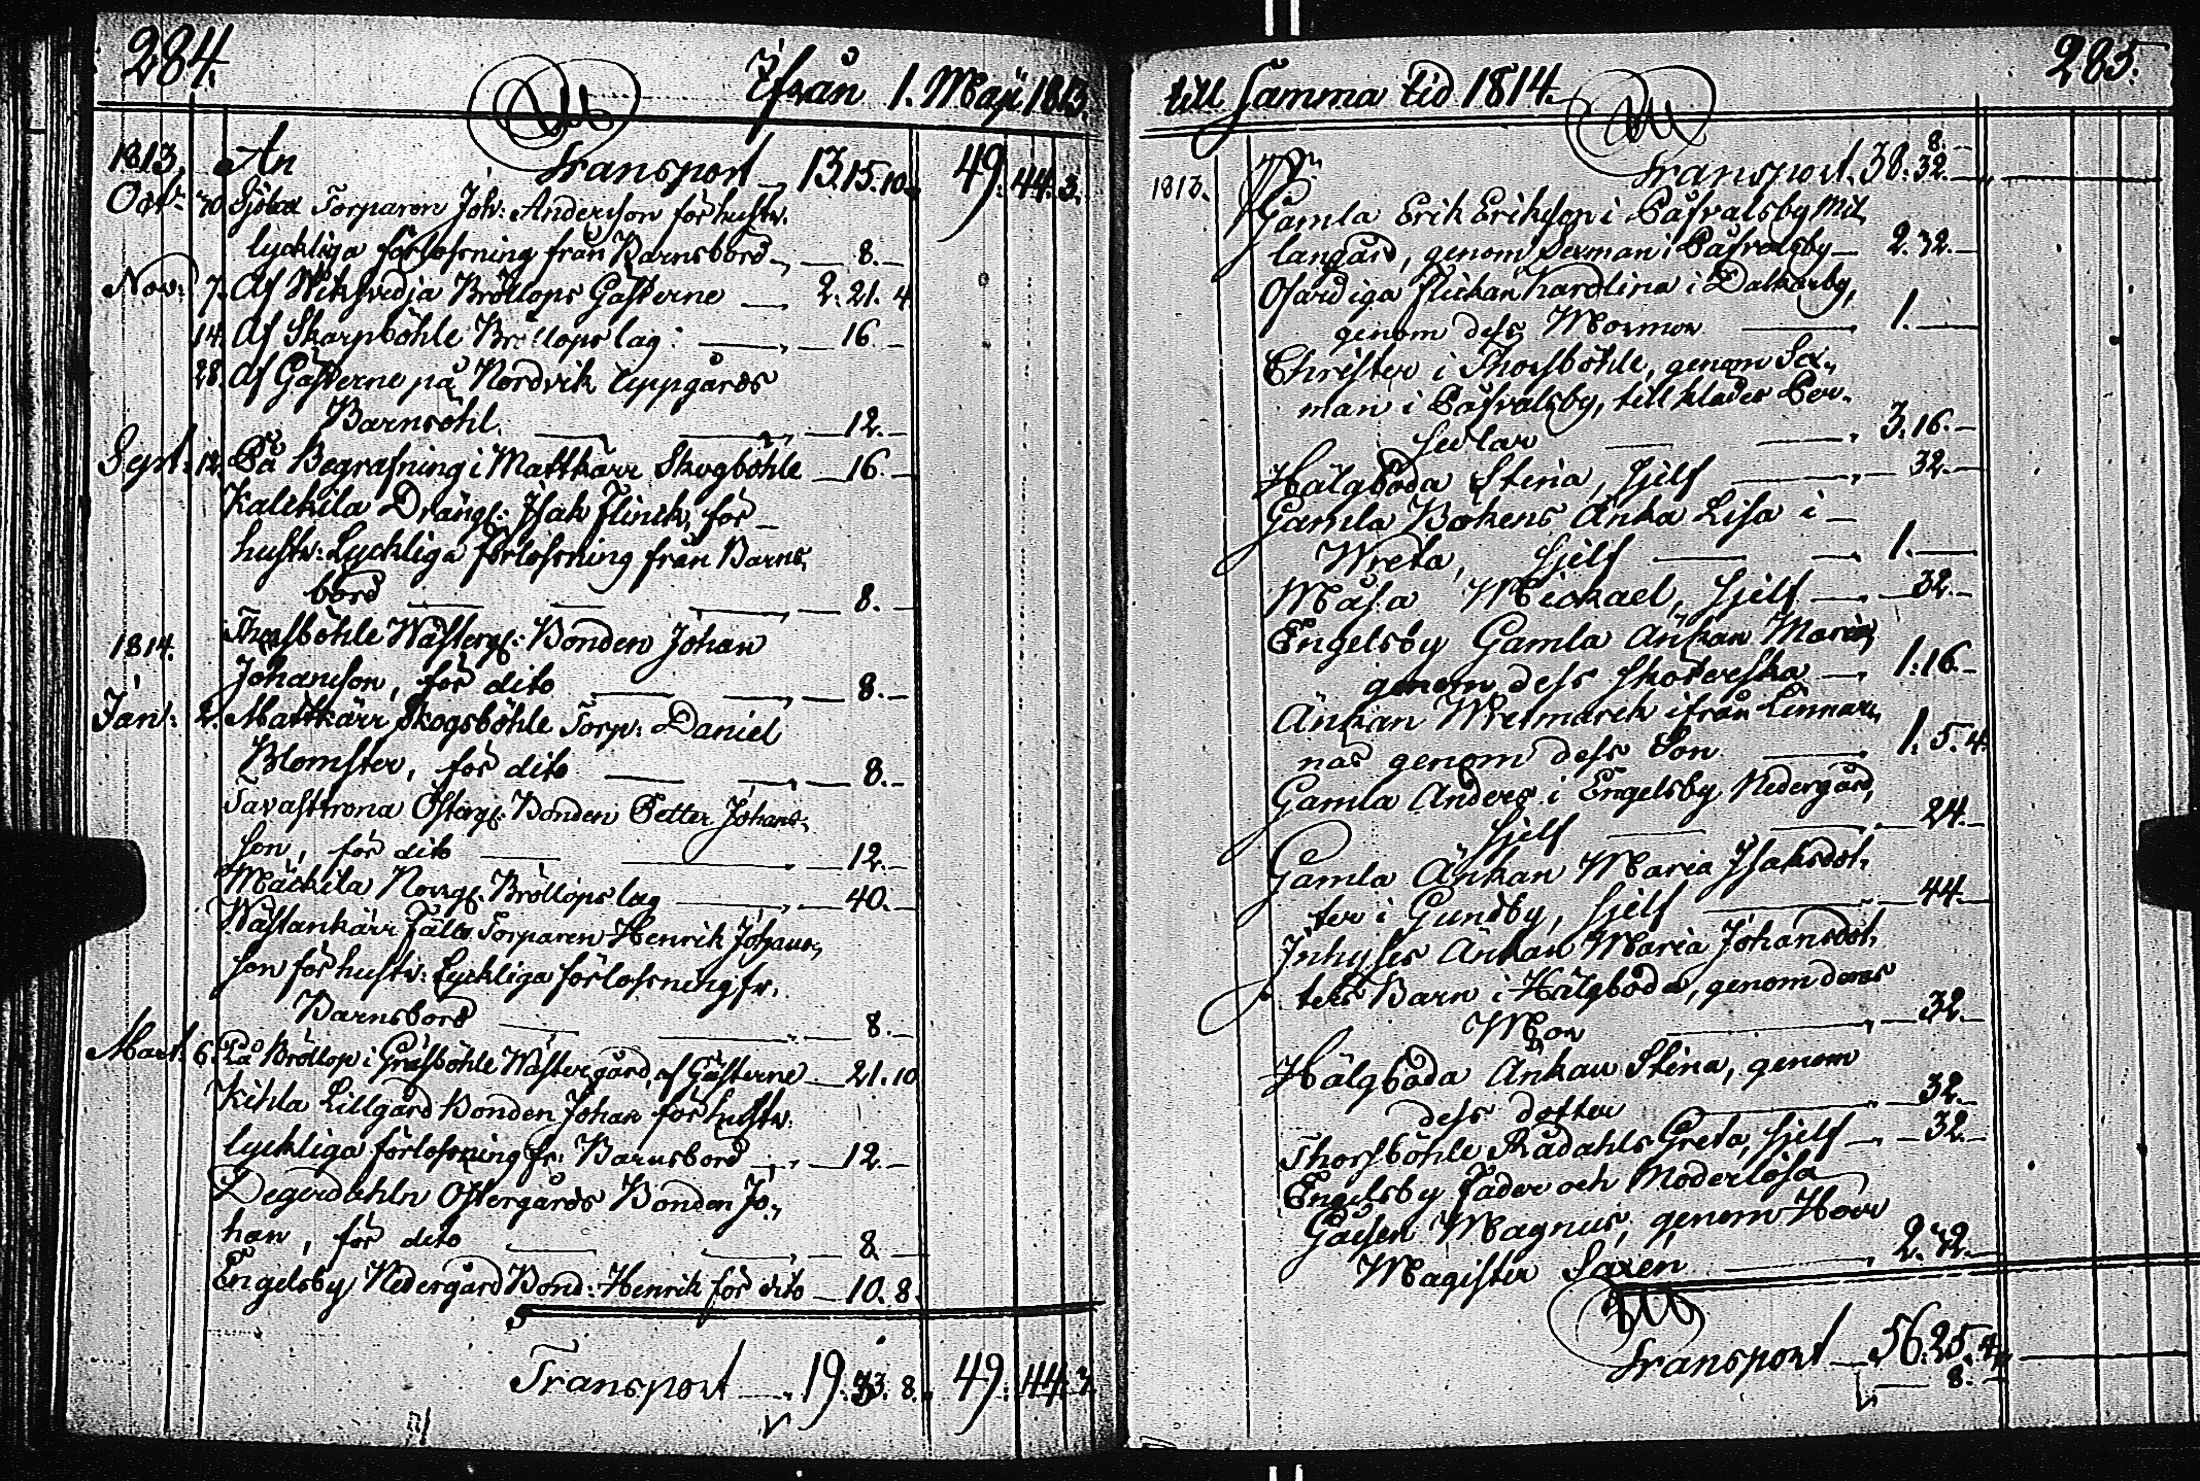 284.
Ifrån 1. Maji 1813.
1813. An Transport 13.15.10. 49. 44. 3.
Oct: Torparen Joh: Andersson för hustr:
lyckliga förlofsning från Barnsbörd 8.
Nov: 7. Af Wiksvedja Bröllops Gästerne 2. 21. 4
14. Af Skarpböhle Bröllops lag: 16
28. Af Gästerne på Nordvik Uppgårds
Barnsöhl. 12.
Sept: 12. På Begrafning i Mattkärr Skogböhle 16.
Kalckila Drängs: Isak Flinck, för
hustr: Lyckliga förlofsning från Barns,
börd 8.
Thorsböhle Wästerg: Bonden Johan
1814.
Johansson, för dito 8.
Jan: 2. Mattkärr Skogsböhle Torp: Daniel
Blomster, för dito 8.
Tavastrona Österg: Bonden Petter Johans-
son, för dito 12.
Mäckila Norrg: Bröllops lag 40.
Wästankärr Fälls Torparen Henrik Johans,
son för hustr: Lyckliga förlofsning fr.
Barnsbörd 8.
Mart: 6. På Bröllop i Gräsböhle Wästergård, af Gästerne 21. 10
Kihla Lillgård Bonden Johan för hustr:
lyckliga förlofsning fr: Barnsbörd 12.
Degerdahln Östergårds Bonden Jo,
han, för dito 8.
Engelsby Nedergård Bond: Henrik för dito 10. 8.
Transport 19. 33. 8. 49. 44. 3.
till samma tid 1814.
285.
8.
Transport. 38. 32.
1813. Gamla Erik Eriksson i Påfvalsby Mel,
langård, genom Sexman i Påfvalsby 2. 32.
Ofärdiga Flickan Karolina i Dalkarby,
genom dess Mormor 1.
Christer i Thorsböhle, genom Sex,
man i Påfvalsby, till kläder Per-
sedlar 3. 16.
Hälgboda Stina, sjelf 32.
Gamla Bökens Änka Lisa i
Wreta, sjelf 1.
Måsa Mickael, sjelf 32.
Engelsby Gamla Änkan Maria,
genom dess skötereska 1. 16.
Änkan Wretmarck ifrån Limnar,
näs genom dess Son 1. 5. 4.
Gamla Anders i Engelsby Nedergård,
sjelf 24.
Gamla Änkan Maria Isaksdot,
ter i Gundby, sjelf 44.
Inhyses Änkan Maria Johansdot,
ters Barn i Hälgboda, genom deras
Mor 32.
Hälgboda Änkan Stina, genom
dess dotter 32.
Thorsböhle Rådahls Greta, sjelf 32.
Engelsby Fader och Moderlösa
Gåssen Magnus, genom Herr
Magister Saxen 2. 32.
Transport 56. 25. 4.
8.